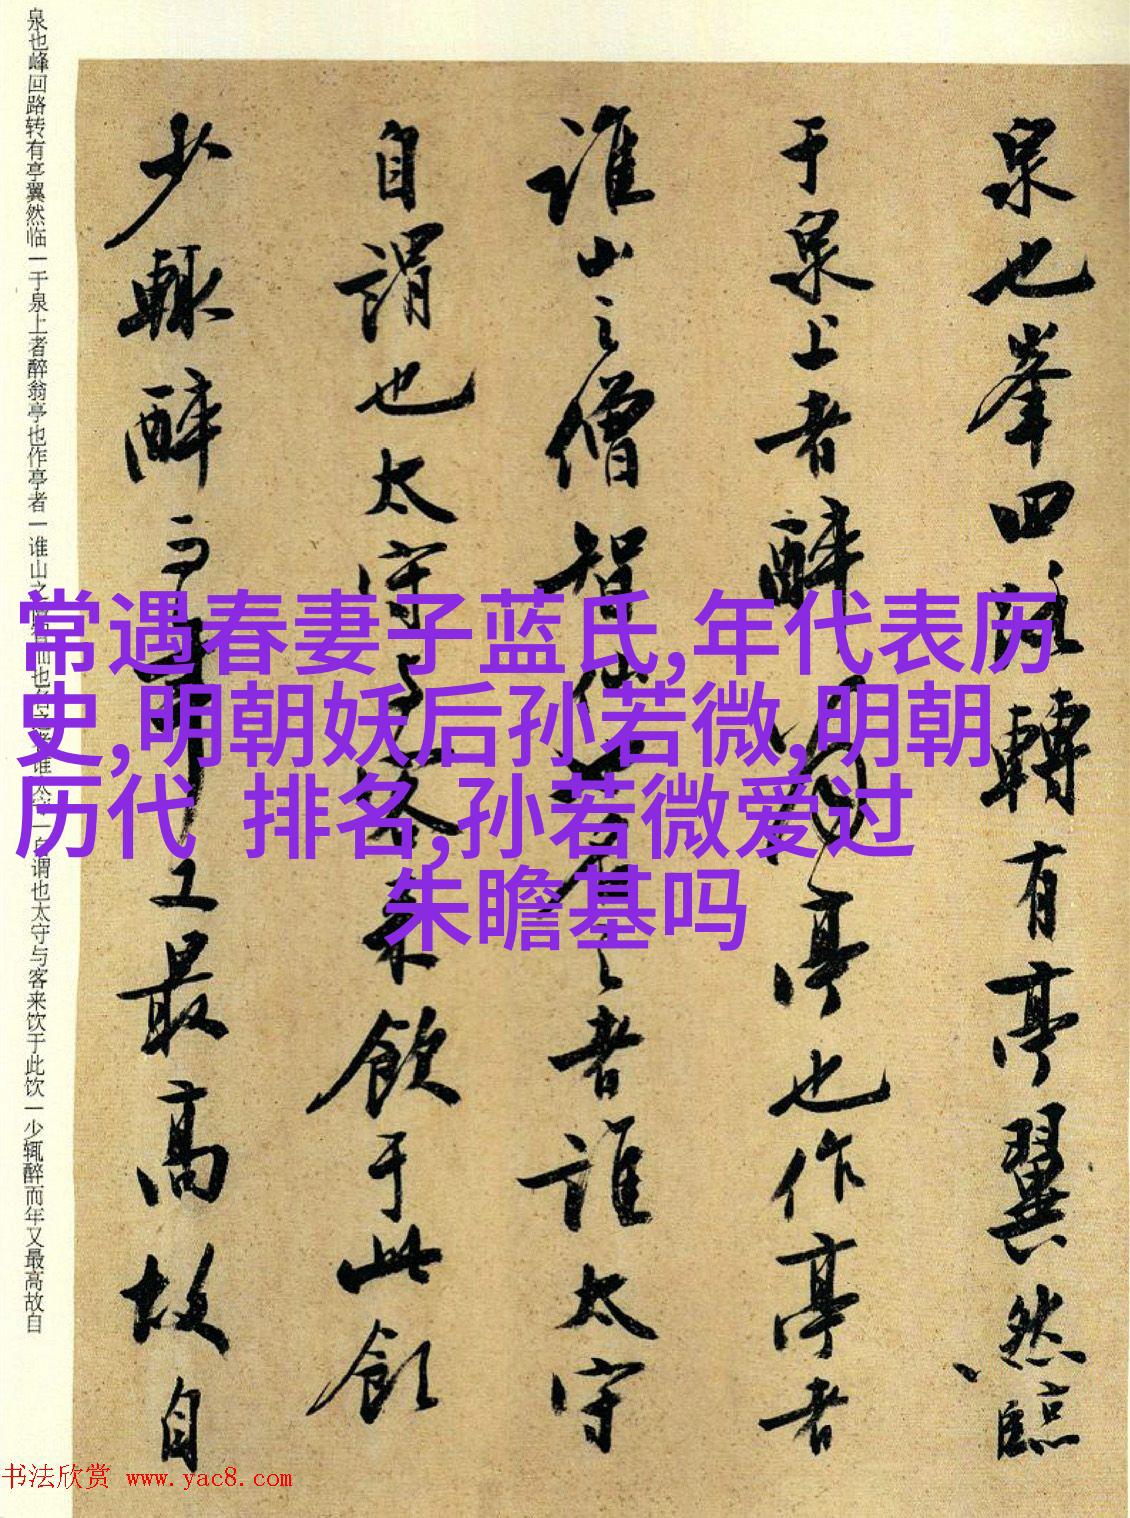 泉也峯回路轉有亭翼然臨
于泉上者醉翁亭也作亭者
誰山之僧智仙也名之者誰太守
自謂也太守与客来飲于此飲
少輒醉而年又最高故自
泉也峰回路转有亭翼然临一于泉上者醉翁亭也作亭者一谁山之僧智仙也名之者谁太守一自谓也太守与客来饮于此饮一少辄醉而年又最高故自
常遇春妻子蓝氏,年代表历
史,明朝妖后孙若微,明朝
历代 排名,孙若微爱过
朱瞻基吗
书法欣赏 www.yac8.com